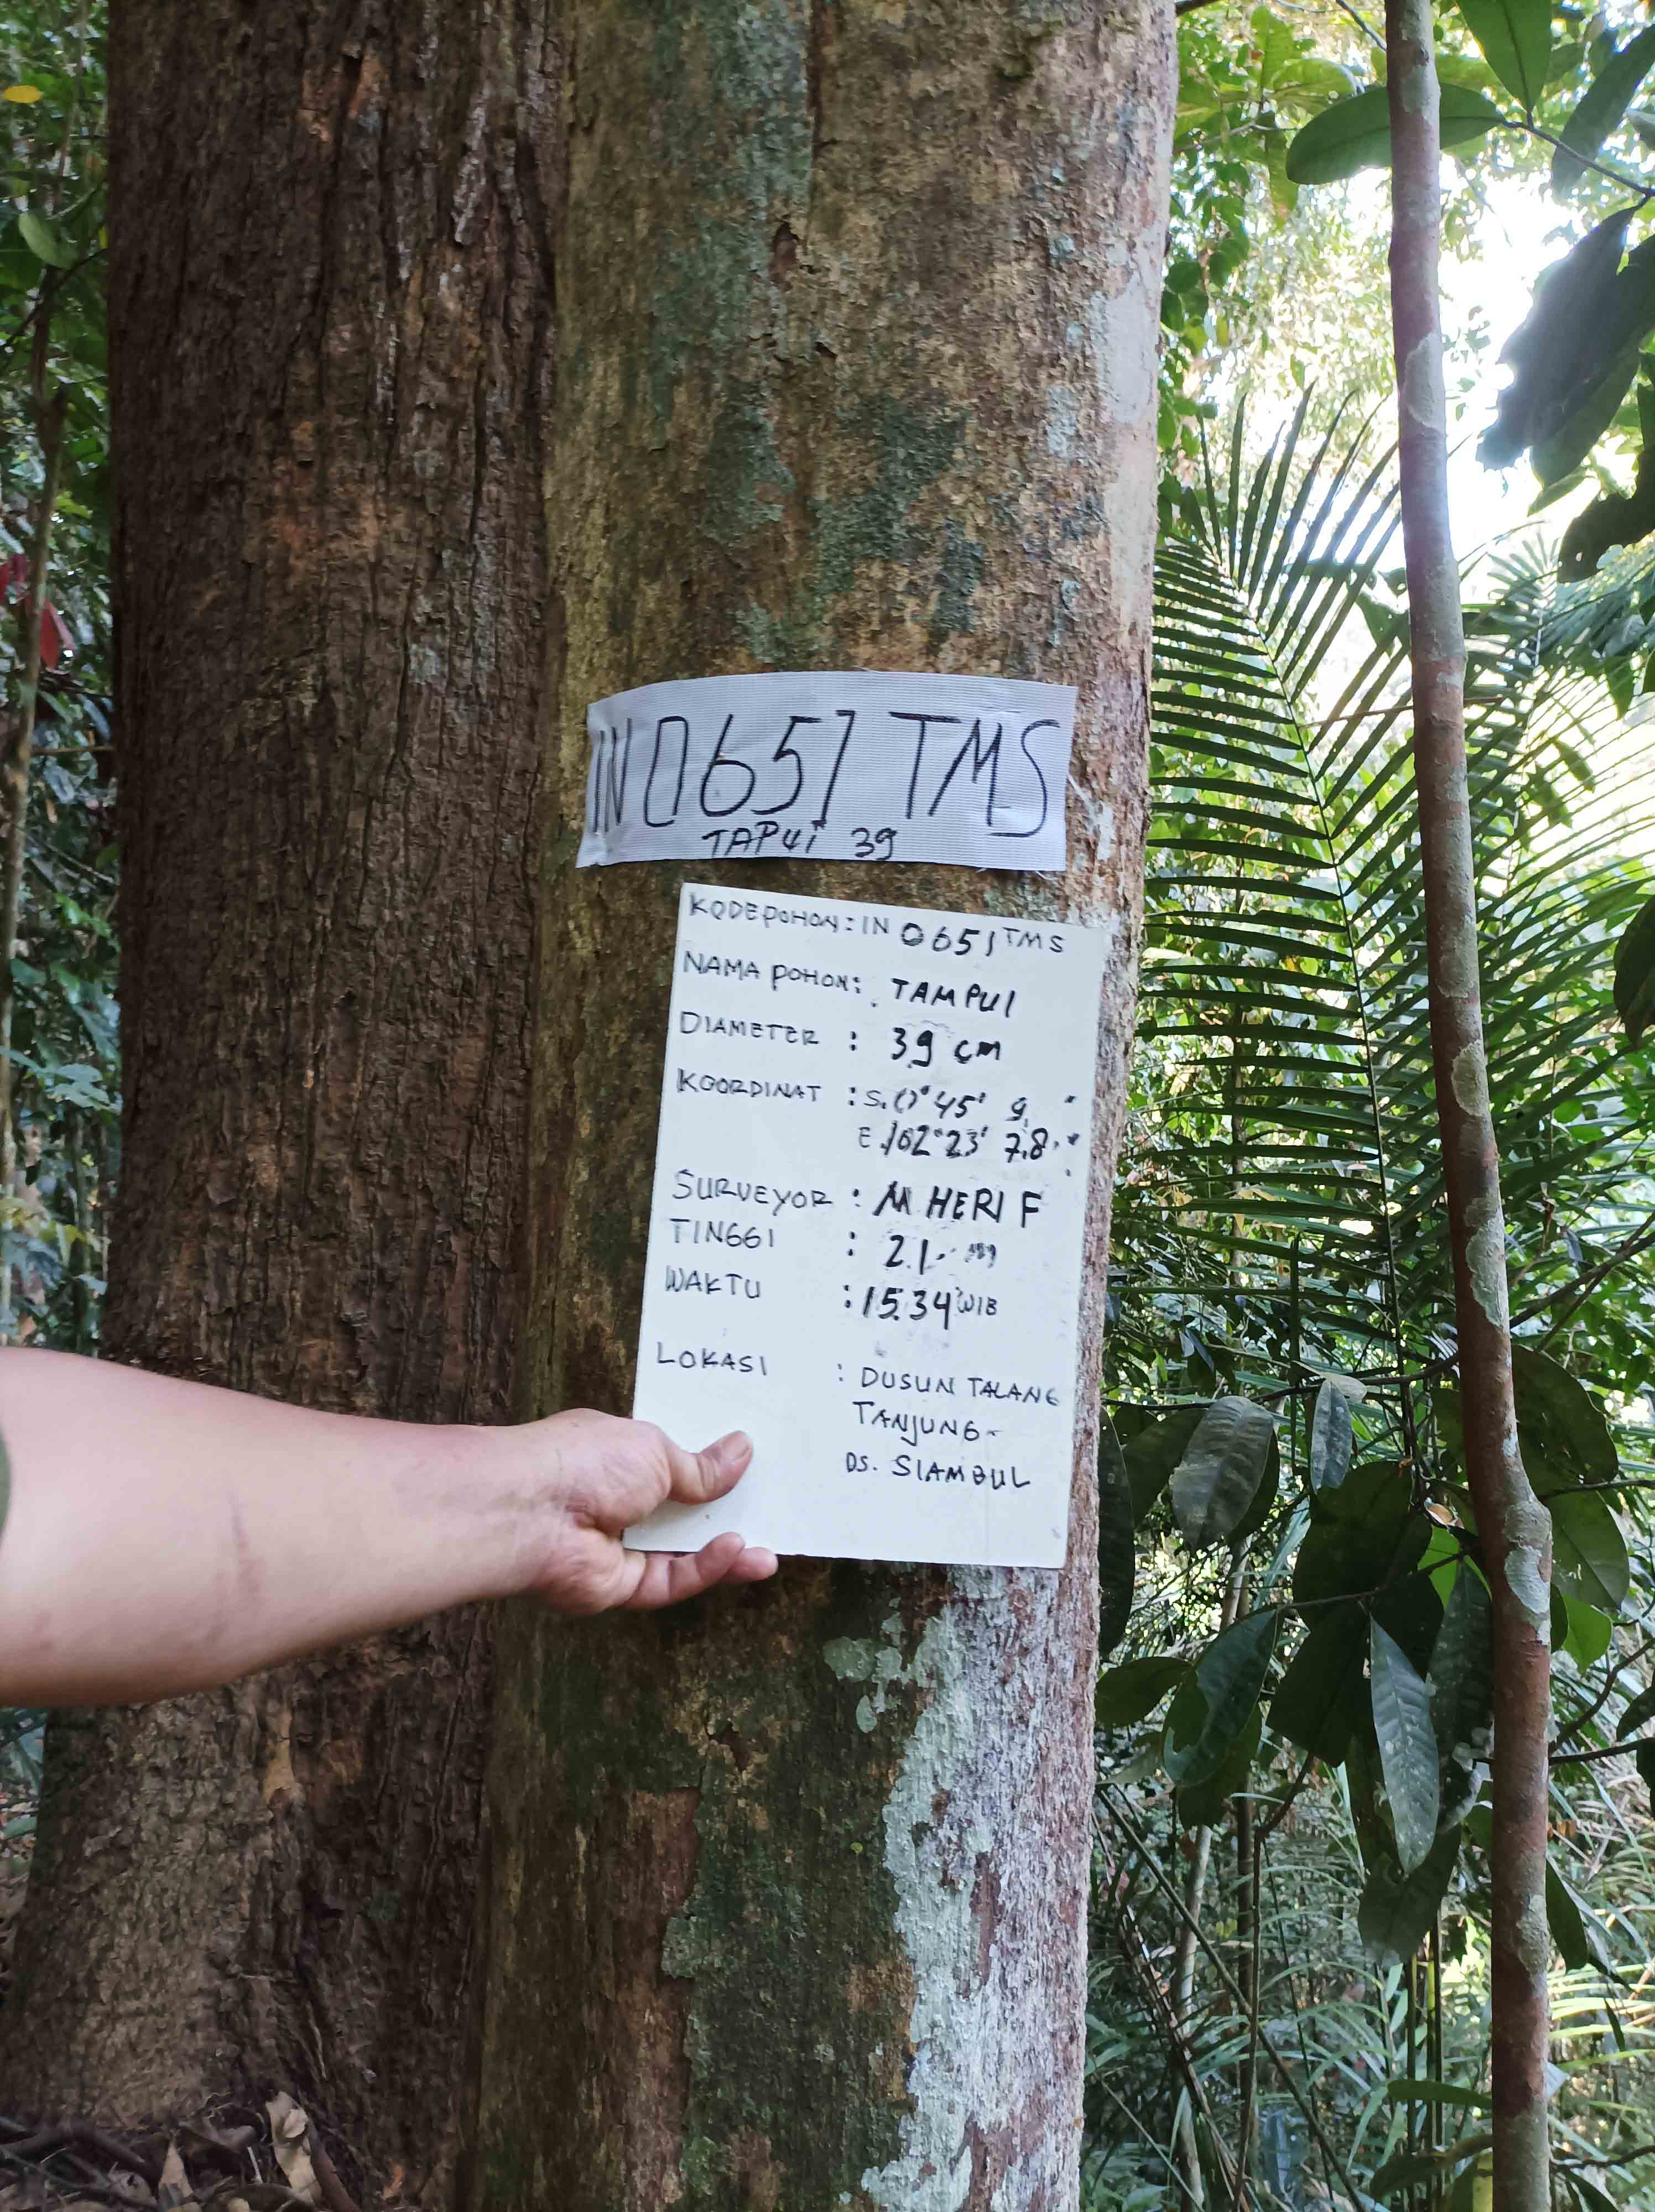 IN 0651 TMS
TAPUI 39
KODE POHON: IN 0651 TMS
NAMA POHON: TAMPUI
DIAMETER : 39 CM
KOORDINAT : S. 0° 45' 9, "
E. 102° 23' 7,8, "
SURVEYOR : M HERI F
TINGGI : 21 m
WAKTU : 15.34 WIB
LOKASI : DUSUN TALANG
TANJUNG-
DS. SIAMBUL